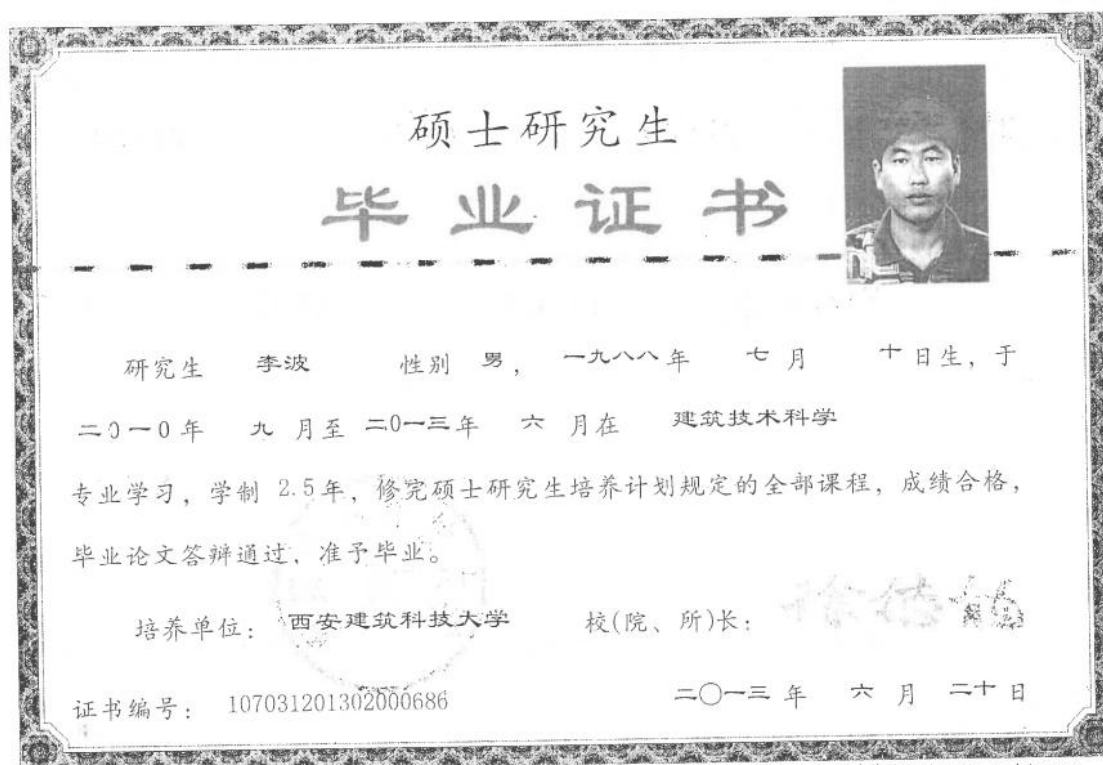 硕士研究生
毕业证书
研究生 李波 性别 男，一九八八年 七月 十日生，于
二0一0年 九月至二0一三年 六月在 建筑技术科学
专业学习，学制 2.5年，修完硕士研究生培养计划规定的全部课程，成绩合格，
毕业论文答辩通过，准予毕业。
培养单位：西安建筑科技大学 校(院、所)长：
证书编号：107031201302000686 二〇一三年 六月 二十日